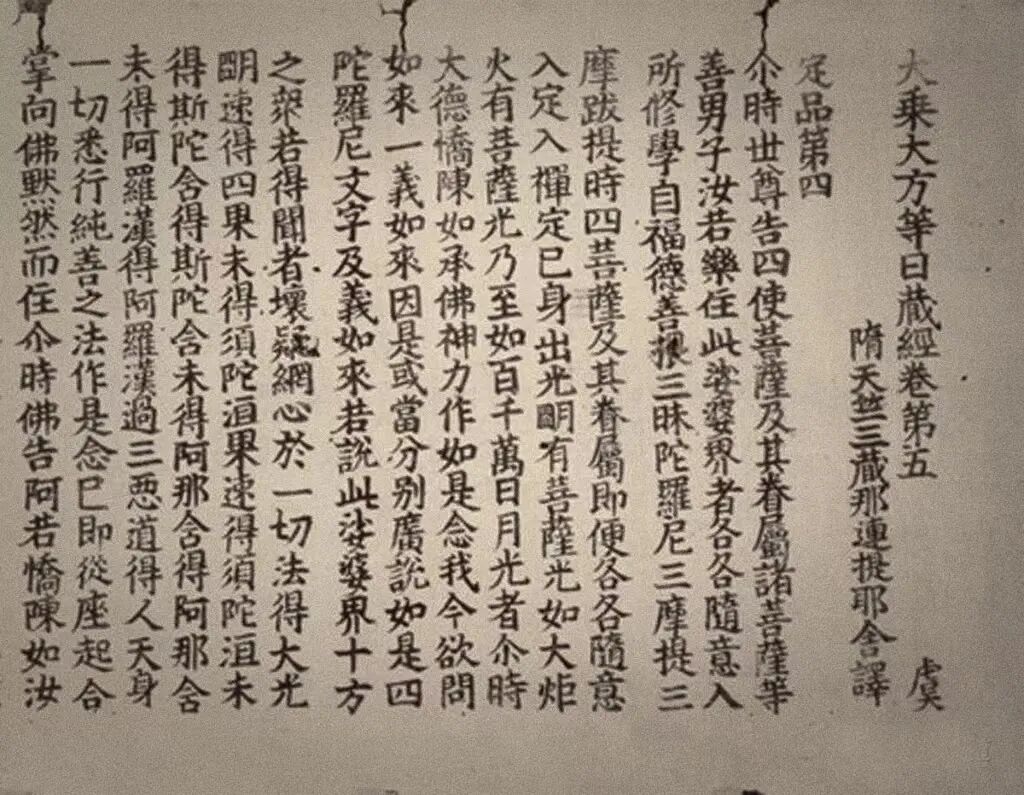 大乗大方等日蔵經卷第五
虞
隋天竺三蔵那連提耶舎譯
定品第四
尒時世尊告四使菩薩及其眷屬諸菩薩等
善男子汝若樂住此娑婆界者各各隨意入
所修學自福德善根三昧陀羅尼三摩提三
摩跋提時四菩薩及其眷屬即便各各隨意
入定入禪定已身出光明有菩薩光如大炬
火有菩薩光乃至如百千萬日月光者尒時
大德憍陳如承佛神力作如是念我今欲問
如來一義如來因是或當分别廣說如是四
陀羅尼文字及義如來若說此娑婆界十方
之衆若得聞者壞疑網心於一切法得大光
明速得四果未得須陀洹果速得須陀洹未
得斯陀含得斯陀含未得阿那含得阿那含
未得阿羅漢得阿羅漢過三惡道得人天身
一切悉行純善之法作是念已即從座起合
掌向佛默然而住尒時佛告阿若憍陳如汝